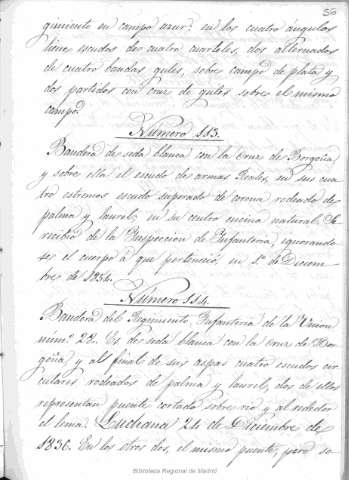 50
gimiento en campo azur: en los cuatro ángulos
tiene escudos de cuatro cuarteles, dos alternados
de cuatro bandas gules, sobre campo de plata y
dos partidos con cruz de gules sobre el mismo
campo.
Número 113.
Bandera de seda blanca con la Cruz de Borgoña,
y sobre ella el escudo de armas Reales, en sus cua
tro estremos escudo superado de corona rodeado de
palma y laurel, en su centro encina natural. Se
recibió de la Inspeccion de Infanteria, ignorando
se el cuerpo á que perteneció, en 1.º de Diciem
bre de 1854.
Número 114.
Bandera del Regimiento Infanteria de la Union
num.º 28. Es de seda blanca con la cruz de Bor
goña, y al final de sus aspas cuatro escudos cir
culares rodeados de palma y laurel, dos de ellos
representan puente cortado sobre rio y al rededor
el lema. Luchana 24 de Diciembre de
1836. En los otros dos, el mismo puente, pero so
Biblioteca Regional de Madrid